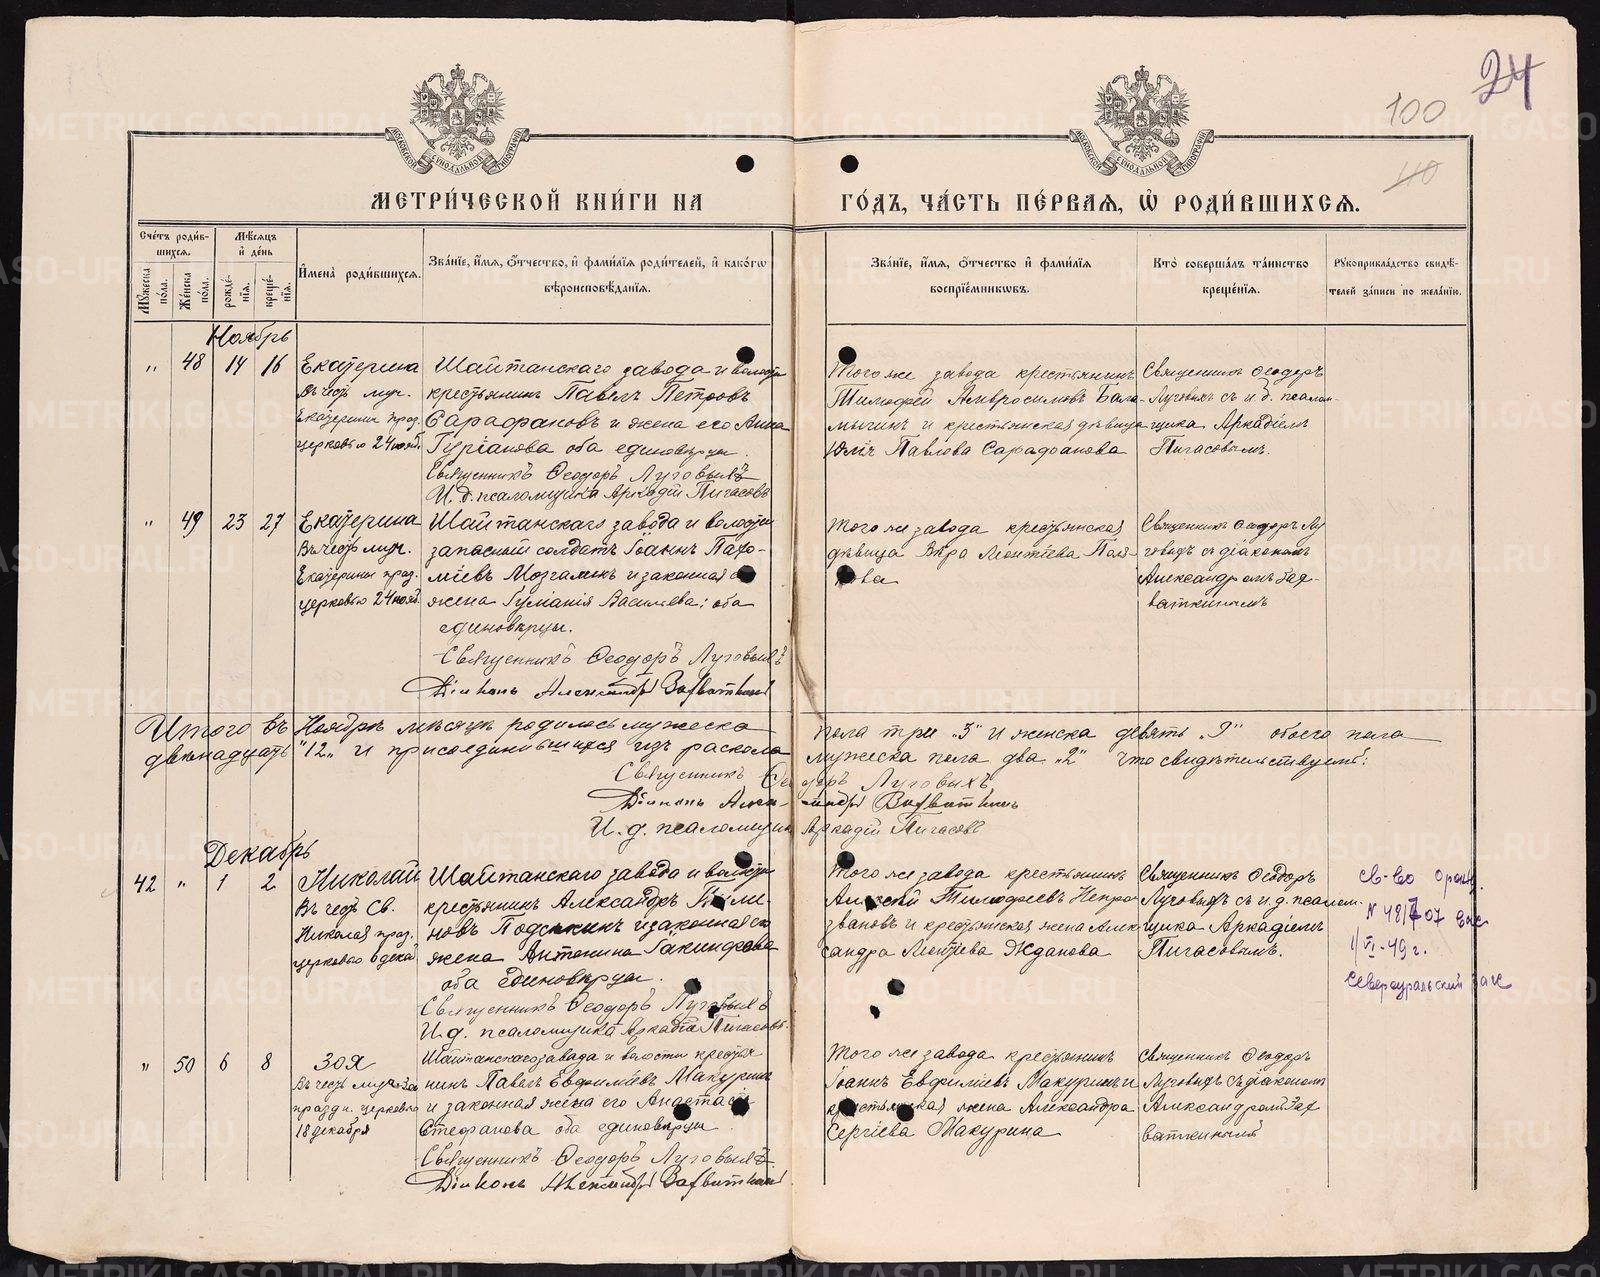 24
100
40
МОСКОВСКОЙ СѴНОДАЛЬНОЙ ТИПОГРАФІИ
МОСКОВСКОЙ СѴНОДАЛЬНОЙ ТИПОГРАФІИ
МЕТРИ́ЧЕСКОЙ КНИ́ГИ НА ГО́ДЪ, ЧА́СТЬ ПЕ́РВАѦ, Ѡ҆ РОДИ́ВШИХСѦ.
Сче́тъ роди́в-
шихсѧ.
Мѣ́сѧцъ
и҆ де́нь
Мꙋ́жеска
по́ла.
Же́нска
по́ла.
рожде́-
нїѧ.
креще́-
нїѧ.
И҆мена̀ роди́вшихсѧ.
Зва́нїе, и҆́мѧ, ѻ҆́тчество, и҆ фами́лїѧ роди́телей, и҆ како́гѡ
вѣроисповѣ́данїѧ.
Зва́нїе, и҆́мѧ, ѻ҆́тчество и҆ фами́лїѧ
воспрїе́мникѡвъ.
Кто̀ соверша́лъ та́инство
креще́нїѧ.
Рꙋкоприкла́дство свидѣ́-
телей за́писи по жела́нїю.
Ноябрь
" 48 14 16
Екатерина
въ честь муч.
Екатерины праз.
церковью 24 нояб.
Шайтанскаго завода и волости
крестьянинъ Павелъ Петровъ
Сарафановъ и жена его Анна
оба единовѣрцы.
Священникъ Ѳеодоръ Луговыхъ
И. д. псаломщика Аркадій Пигасовъ
Того же завода крестьянинъ
Тимофей Амвросимовъ Бала-
мычинъ и крестьянская дѣвица
Юлія Павлова Сарафанова
Священникъ Ѳеодоръ
Луговыхъ съ и. д. псалом-
щика Аркадіемъ
Пигасовымъ.
" 49 23 27
Екатерина
въ честь муч.
Екатерины праз.
церковью 24 нояб.
Шайтанскаго завода и волости
запасный солдатъ Іоаннъ Пахо-
міевъ и законная его
жена Васильева; оба
единовѣрцы.
Священникъ Ѳеодоръ Луговыхъ
Діаконъ Александръ
Того же завода крестьянская
дѣвица Вѣра Леонтіева Поля-
кова
Священникъ Ѳеодоръ Лу
говыхъ съ діакономъ
Александромъ Зав-
ваткинымъ
Итого въ Ноябрѣ мѣсяцѣ родилось мужеска пола три „3" и женска девять „9" обоего пола
двенадцать "12„ и присоединившихся изъ раскола мужеска пола два „2" что свидѣтельствуемъ:
Священникъ Ѳеодоръ Луговыхъ
Діаконъ Александръ
И. д. псаломщика Аркадій Пигасовъ
Декабрь
42 " 1 2
Николай
Въ честь Св.
Николая праз.
церковью 6 декаб
Шайтанскаго завода и волости
крестьянинъ Александръ
новъ и законная его
жена Антонина Іакинфова
оба единовѣрцы.
Священникъ Ѳеодоръ Луговыхъ
И. д. псаломщика Аркадій Пигасовъ.
Того же завода крестьянинъ
Алексѣй Тимофеевъ Непро
звановъ и крестьянская жена Алек
сандра Леонтіева Жданова
Священникъ Ѳеодоръ
Луговыхъ съ и. д. псалом-
щика Аркадіемъ
Пигасовымъ.
св-во
1/VI-49 г.
Североуральский Загс
" 50 6 8
Зоя
Въ честь муч. Зои
праздн. церковью
18 декабря
Шайтанскаго завода и волости крестья
нинъ Павелъ Евфиміевъ Макуринъ
и законная жена его Анастасія
Стефанова оба единовѣрцы.
Священникъ Ѳеодоръ Луговыхъ
Діаконъ Александръ
Того же завода крестьянинъ
Іоаннъ Евфиміевъ Макуринъ и
крестьянская жена Александра
Сергіева Макурина
Священникъ Ѳеодоръ
Луговыхъ съ діакономъ
Александромъ Зав
ваткинымъ
METRIKI.GASO-URAL.RU